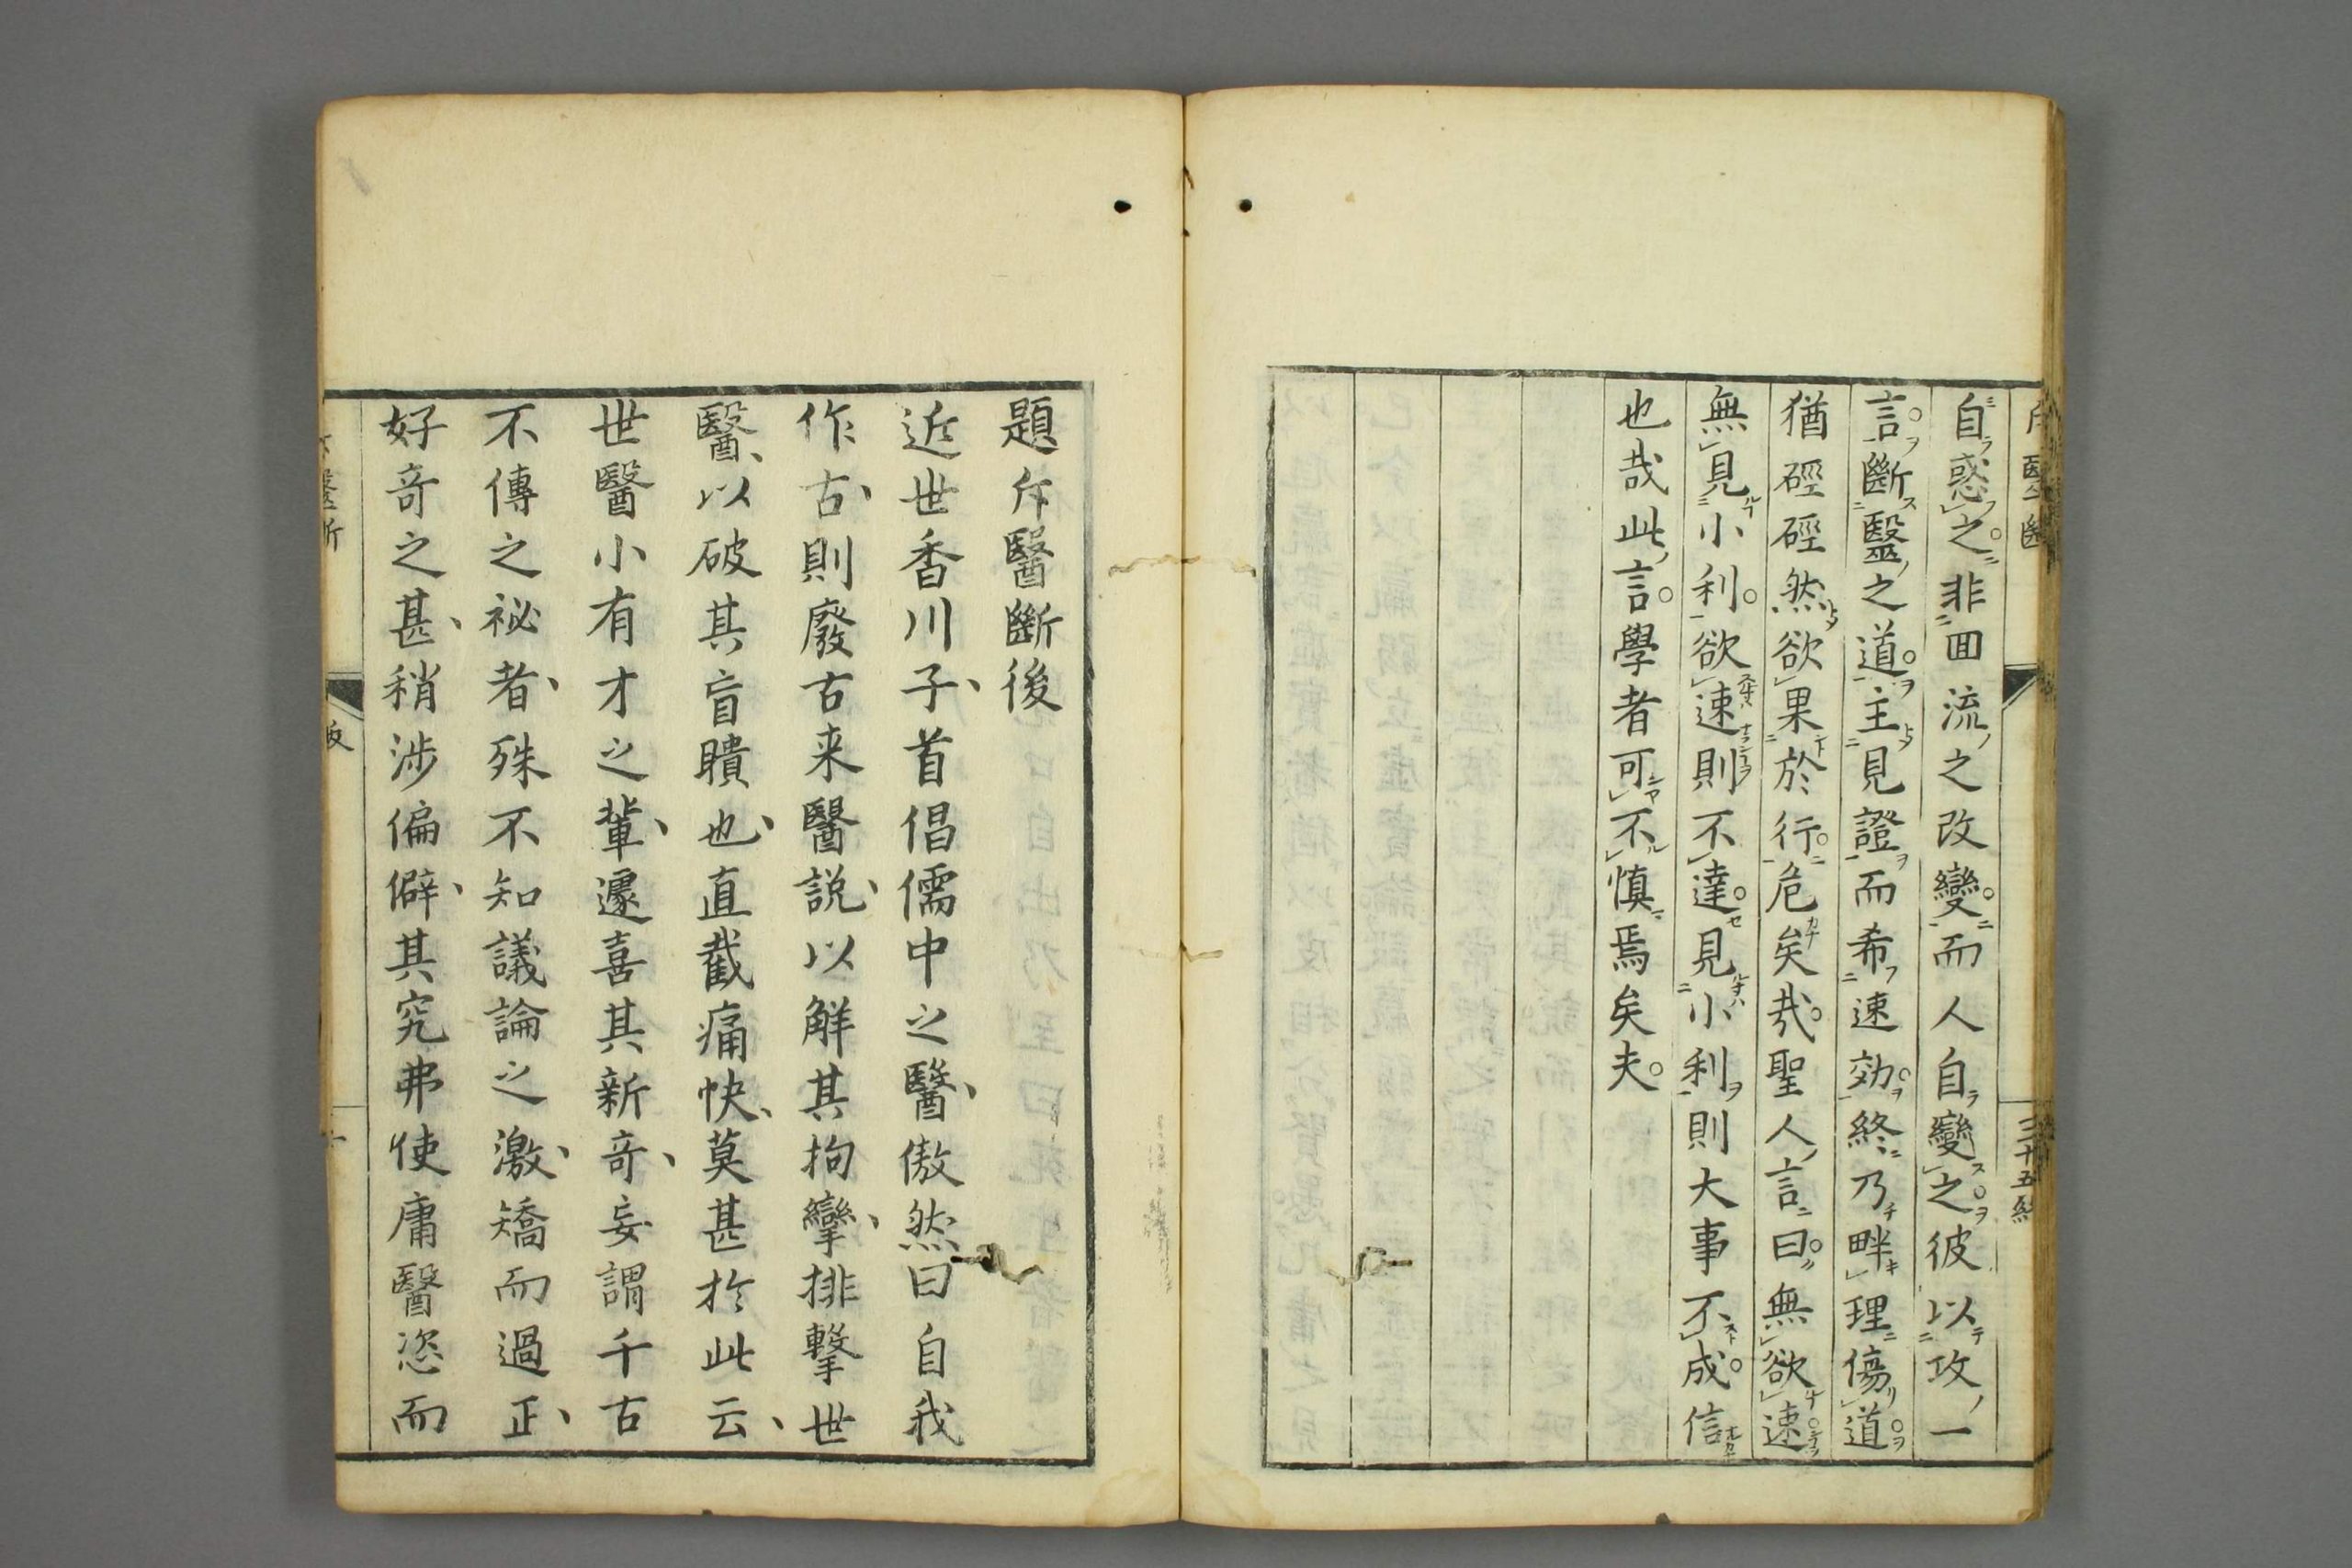 斥醫斷
三十五終
自惑之非面流之改變而人自變之彼以攻一
言斷醫之道主見證而希速効終乃畔理傷道
猶硜硜然欲果於行危矣哉聖人言曰無欲速
無見小利欲速則不達見小利則大事不成信
也哉此言學者可不慎焉矣夫
題斥醫斷後
近世香川子首倡儒中之醫傲然曰自我
作古則廢古来醫説以解其拘攣排擊世
醫以破其盲聵也直截痛快莫甚於此云
世醫小有才之輩遽喜其新奇妄謂千古
不傳之祕者殊不知議論之激矯而過正
好奇之甚稍涉偏僻其究弗使庸醫恣而